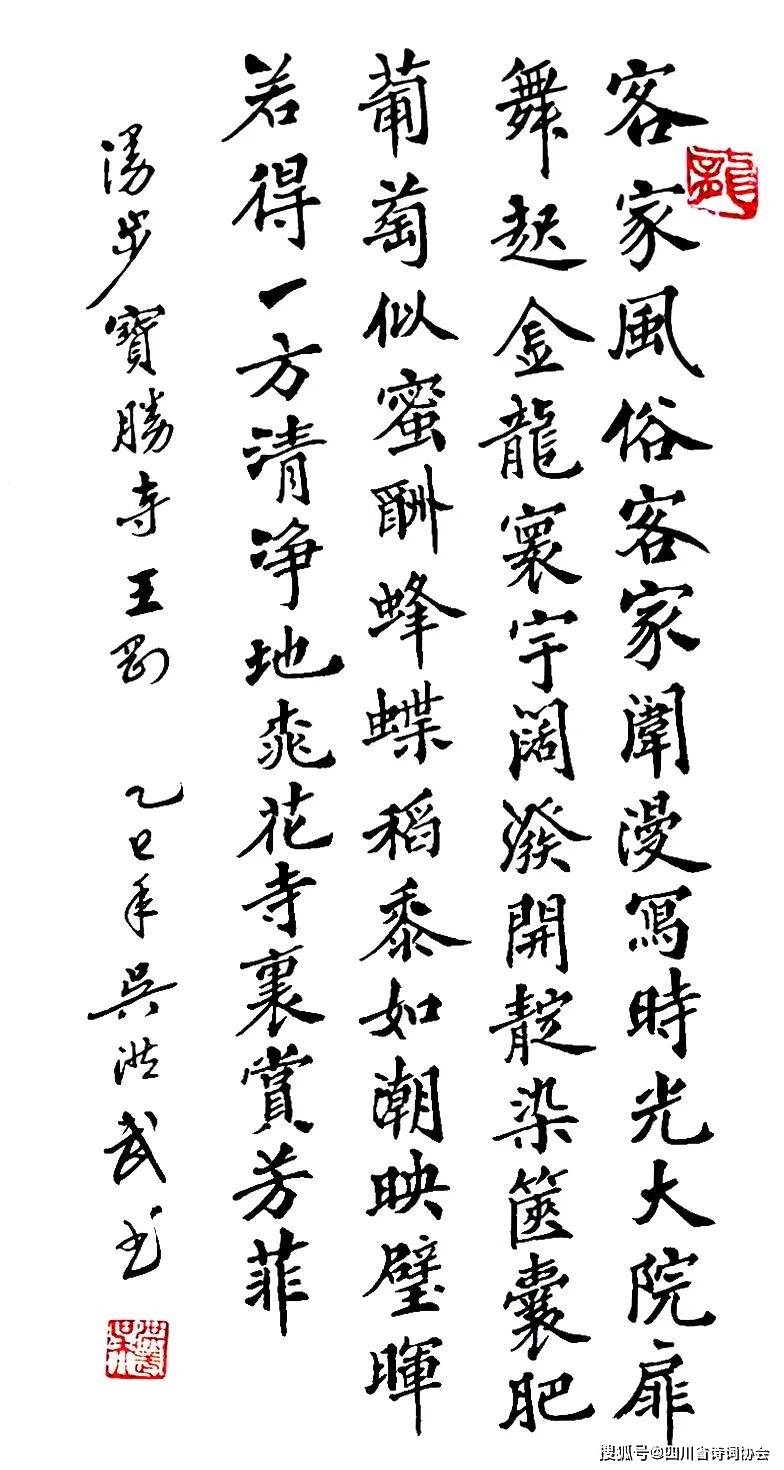 客家風俗客家闈漫寫時光大院扉
舞起金龍寰宇闊潑開靛染篋囊肥
葡萄似蜜酬蜂蝶稻黍如潮映璧暉
若得一方清净地桃花寺裏賞芳菲
漫步寶勝寺王剛 乙巳年吳洪武书
龍
搜狐号@四川省诗词协会